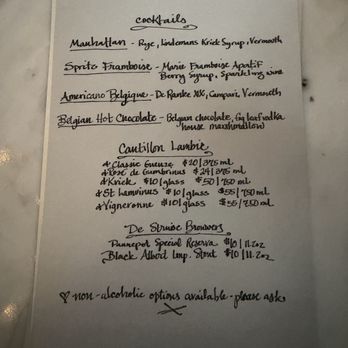 cocktails
Manhattan - Rye, Lindemans Kriek Syrup, Vermouth
Spritz Framboise - Marie Framboise Apatif
Berry Syrup, Sparkling wine
Americano Belgique - De Ranke XX, Campari, Vermouth
Belgian Hot Chocolate - Belgian chocolate, vodka
house marshmallow
Cantillon Lambic
Classic Gueuze $20/375 ml
Rose de Gambrinus $24/375 ml
Kriek $10/glass $50/750 ml
St Lamvinus $10/glass $55/750 ml
Vigneronne $10/glass $55/750 ml
De Struise Brouwers
Pannepot Special Reserva $10/11.2oz
Black Albert Imp. Stout $10/11.2oz
non-alcoholic options available - please ask